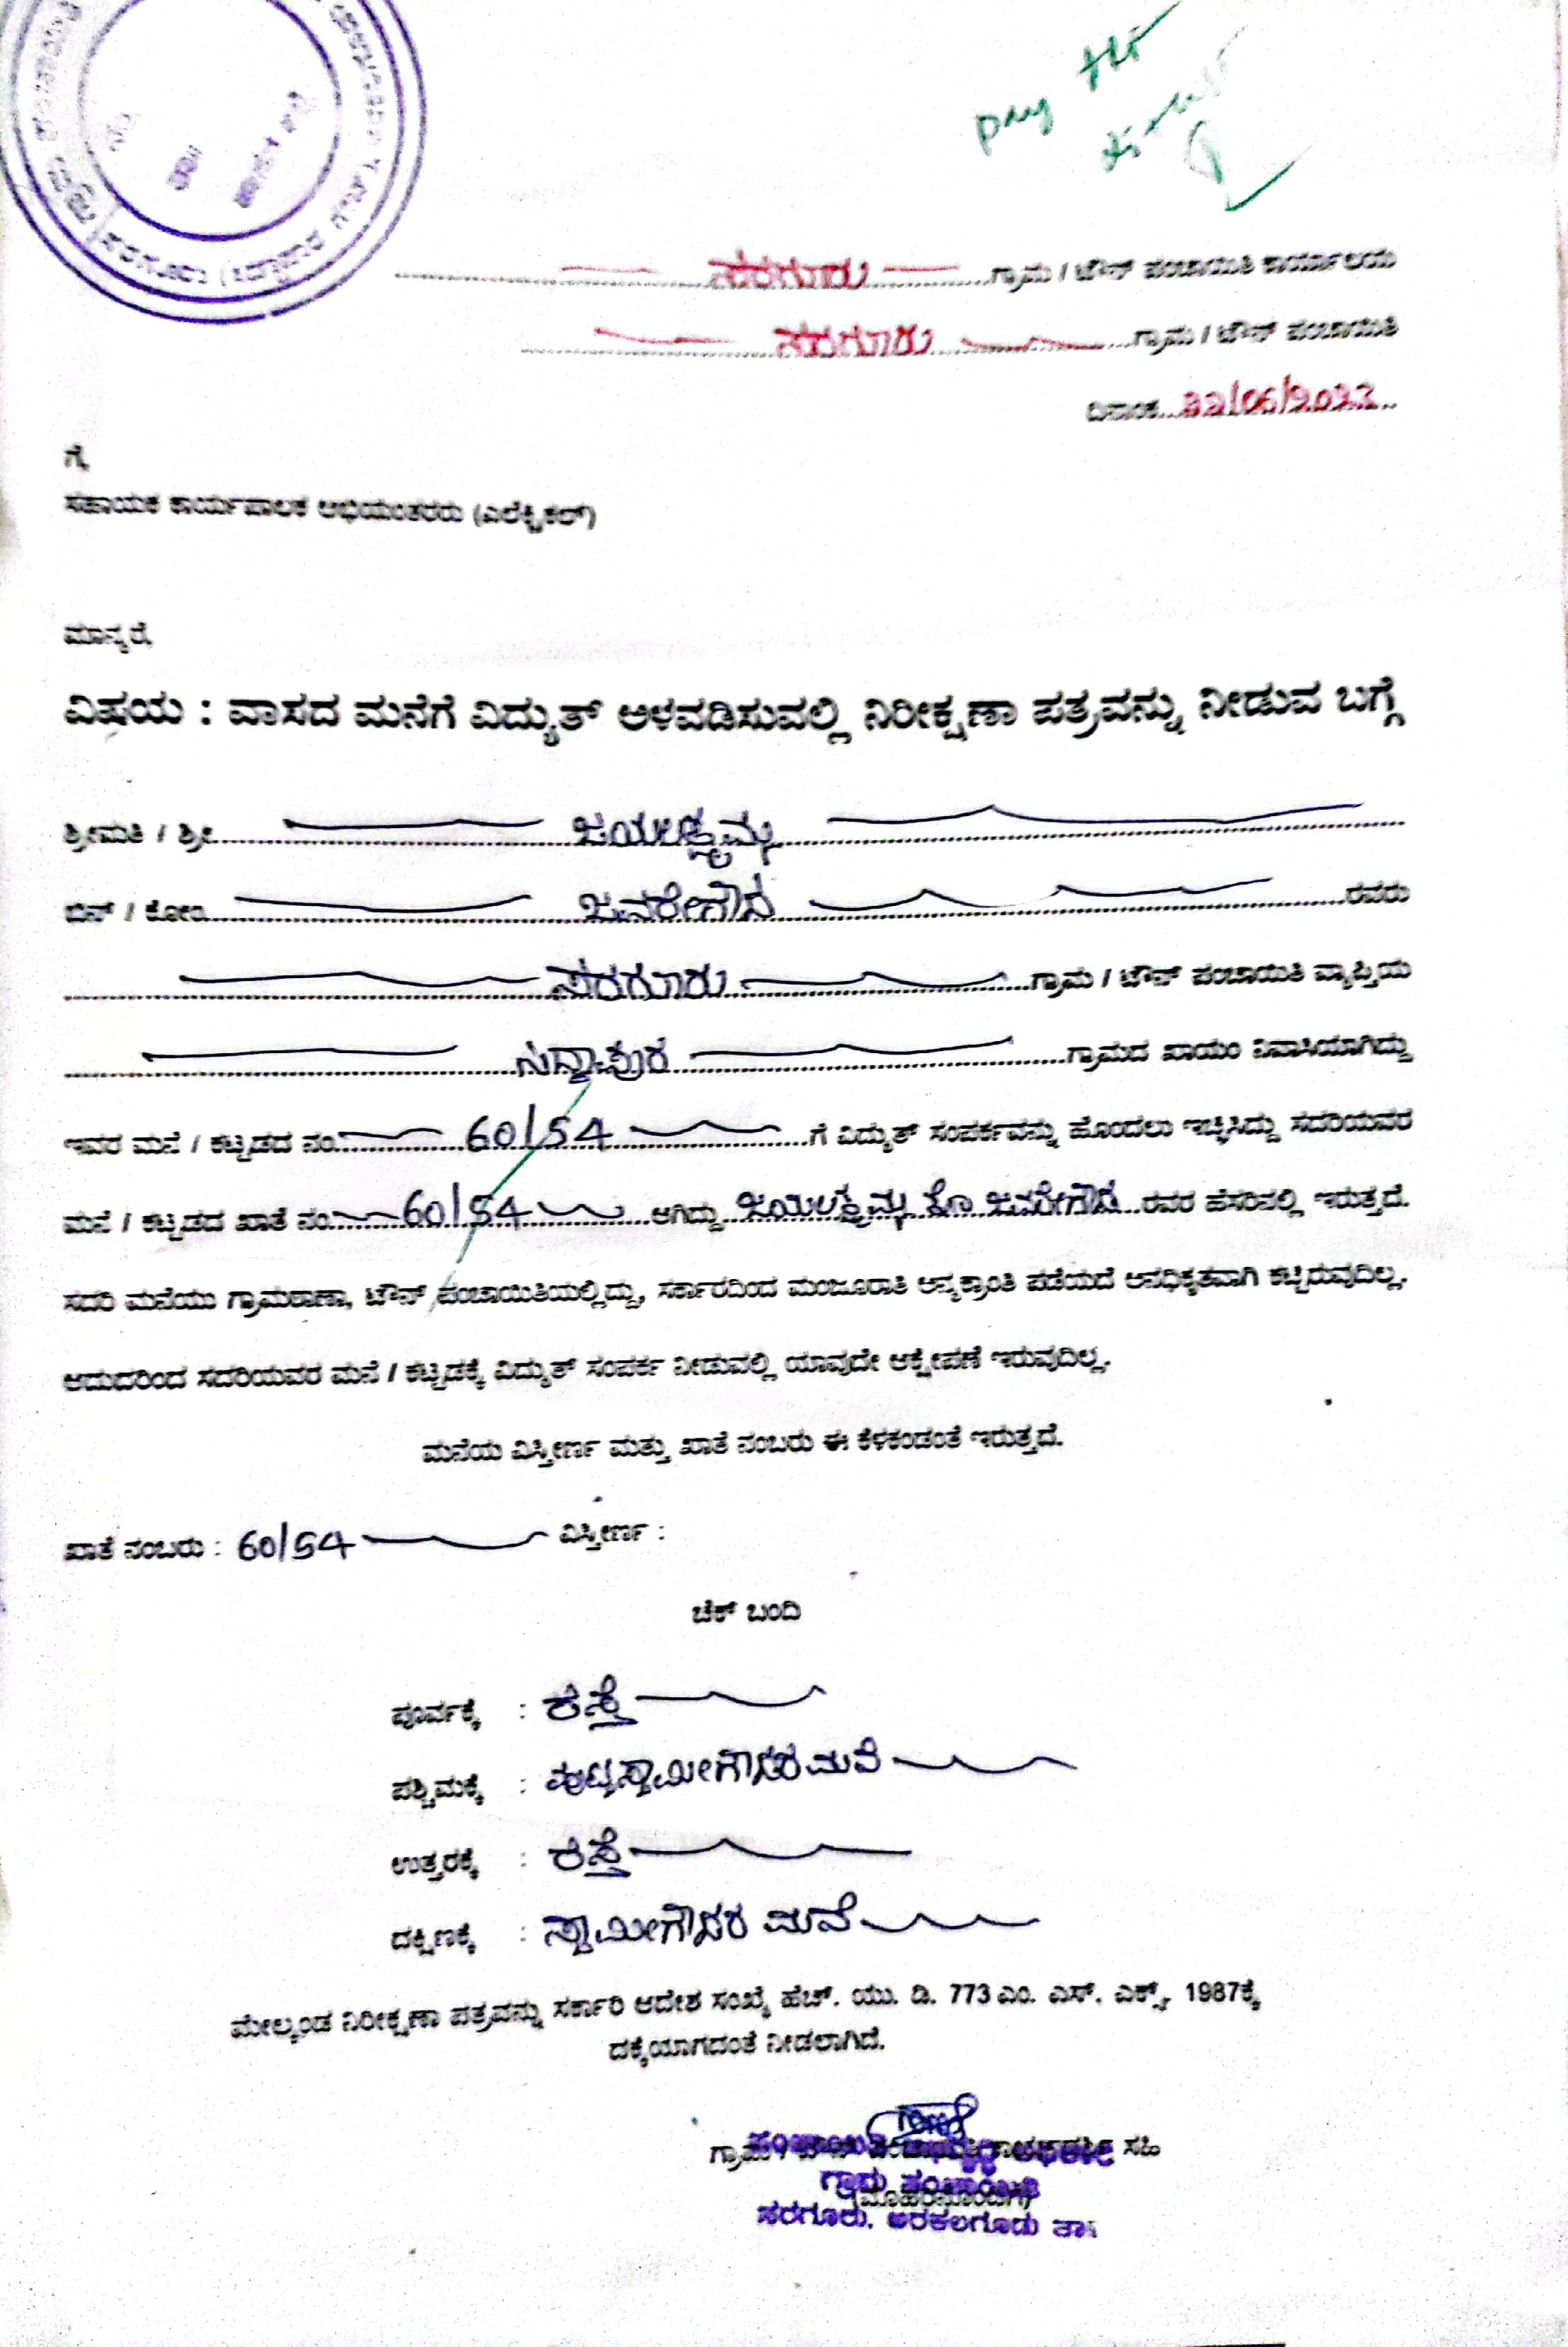 pay
ಸರಗೂರು ಗ್ರಾಮ / ಟೌನ್ ಪಂಚಾಯಿತಿ ಕಾರ್ಯಾಲಯ
ಸರಗೂರು ಗ್ರಾಮ / ಟೌನ್ ಪಂಚಾಯಿತಿ
ದಿನಾಂಕ
ಗೆ,
ಸಹಾಯಕ ಕಾರ್ಯಪಾಲಕ ಅಭಿಯಂತರರು (ಎಲೆಕ್ಟ್ರಿಕಲ್)
ಮಾನ್ಯರೆ,
ವಿಷಯ : ವಾಸದ ಮನೆಗೆ ವಿದ್ಯುತ್ ಅಳವಡಿಸುವಲ್ಲಿ ನಿರೀಕ್ಷಣಾ ಪತ್ರವನ್ನು ನೀಡುವ ಬಗ್ಗೆ
ಶ್ರೀಮತಿ / ಶ್ರೀ ಜಯಲಕ್ಷ್ಮಮ್ಮ
ಬಿನ್ / ಕೋಂ ಜವರೇಗೌಡ ರವರು
ಸರಗೂರು ಗ್ರಾಮ / ಟೌನ್ ಪಂಚಾಯಿತಿ ವ್ಯಾಪ್ತಿಯ
ಸಿದ್ದಾಪುರ ಗ್ರಾಮದ ಖಾಯಂ ನಿವಾಸಿಯಾಗಿದ್ದು
ಇವರ ಮನೆ / ಕಟ್ಟಡದ ನಂ. 60/54 ಗೆ ವಿದ್ಯುತ್ ಸಂಪರ್ಕವನ್ನು ಹೊಂದಲು ಇಚ್ಛಿಸಿದ್ದು ಸದರಿಯವರ
ಮನೆ / ಕಟ್ಟಡದ ಖಾತೆ ನಂ. 60/54 ಆಗಿದ್ದು ಜಯಲಕ್ಷ್ಮಮ್ಮ ಕೋ ಜವರೇಗೌಡ ರವರ ಹೆಸರಿನಲ್ಲಿ ಇರುತ್ತದೆ.
ಸದರಿ ಮನೆಯು ಗ್ರಾಮಠಾಣಾ, ಟೌನ್ ಪಂಚಾಯಿತಿಯಲ್ಲಿದ್ದು, ಸರ್ಕಾರದಿಂದ ಮಂಜೂರಾತಿ ಅನ್ಯಕ್ರಾಂತಿ ಪಡೆಯದೆ ಅನಧಿಕೃತವಾಗಿ ಕಟ್ಟಿರುವುದಿಲ್ಲ.
ಆದುದರಿಂದ ಸದರಿಯವರ ಮನೆ / ಕಟ್ಟಡಕ್ಕೆ ವಿದ್ಯುತ್ ಸಂಪರ್ಕ ನೀಡುವಲ್ಲಿ ಯಾವುದೇ ಆಕ್ಷೇಪಣೆ ಇರುವುದಿಲ್ಲ.
ಮನೆಯ ವಿಸ್ತೀರ್ಣ ಮತ್ತು ಖಾತೆ ನಂಬರು ಈ ಕೆಳಕಂಡಂತೆ ಇರುತ್ತದೆ.
ಖಾತೆ ನಂಬರು : 60/54 ವಿಸ್ತೀರ್ಣ :
ಚೆಕ್ ಬಂದಿ
ಪೂರ್ವಕ್ಕೆ : ರಸ್ತೆ
ಪಶ್ಚಿಮಕ್ಕೆ : ಪುಟ್ಟಸ್ವಾಮೀಗೌಡರ ಮನೆ
ಉತ್ತರಕ್ಕೆ : ರಸ್ತೆ
ದಕ್ಷಿಣಕ್ಕೆ : ಸ್ವಾಮೀಗೌಡರ ಮನೆ
ಮೇಲ್ಕಂಡ ನಿರೀಕ್ಷಣಾ ಪತ್ರವನ್ನು ಸರ್ಕಾರಿ ಆದೇಶ ಸಂಖ್ಯೆ ಹೆಚ್. ಯು. ಡಿ. 773 ಎಂ. ಎಸ್. ಎಕ್ಸ್. 1987ಕ್ಕೆ
ದಕ್ಕೆಯಾಗದಂತೆ ನೀಡಲಾಗಿದೆ.
ಸಹಿ
ಗ್ರಾಮ ಪಂಚಾಯಿತಿ
(ಮೊಹರಿನೊಂದಿಗೆ)
ಸರಗೂರು. ಅರಕಲಗೂಡು ತಾ॥